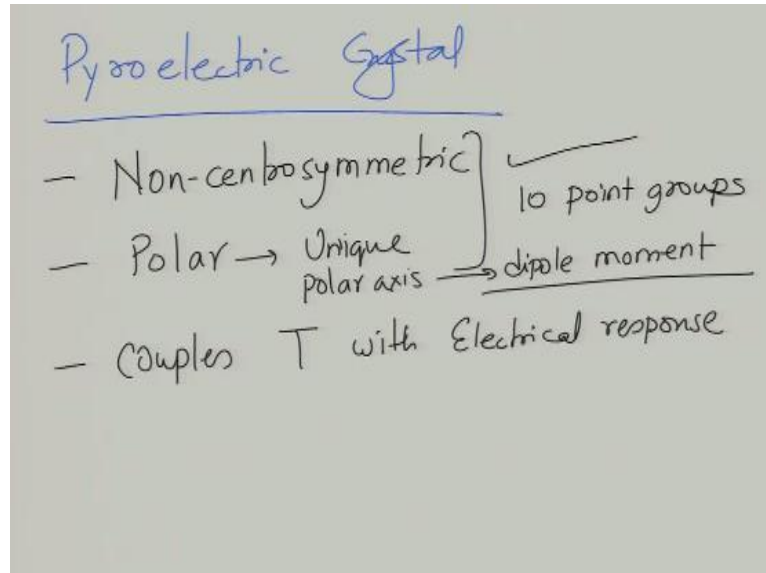 Pyroelectric Crystal
- Non-centrosymmetric
10 point groups
- Polar → Unique
polar axis → dipole moment
- Couples T with Electrical response